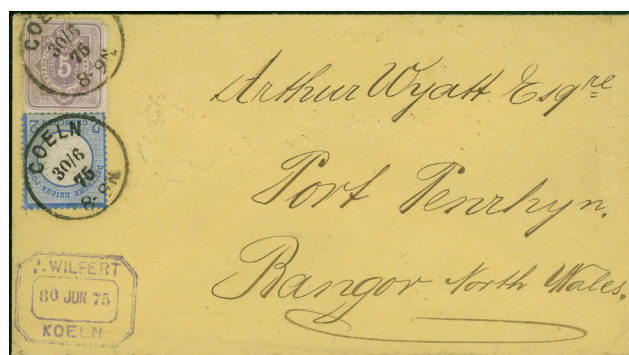 COELN
30/6
75
8-9N
5
COELN
30/6
75
8-9N
2
DEUTSCHE REICHS-PO
Arthur Wyatt Esqre
Port Penrhyn.
Bangor North Wales.
J. WILFERT
30 JUN 75
KOELN